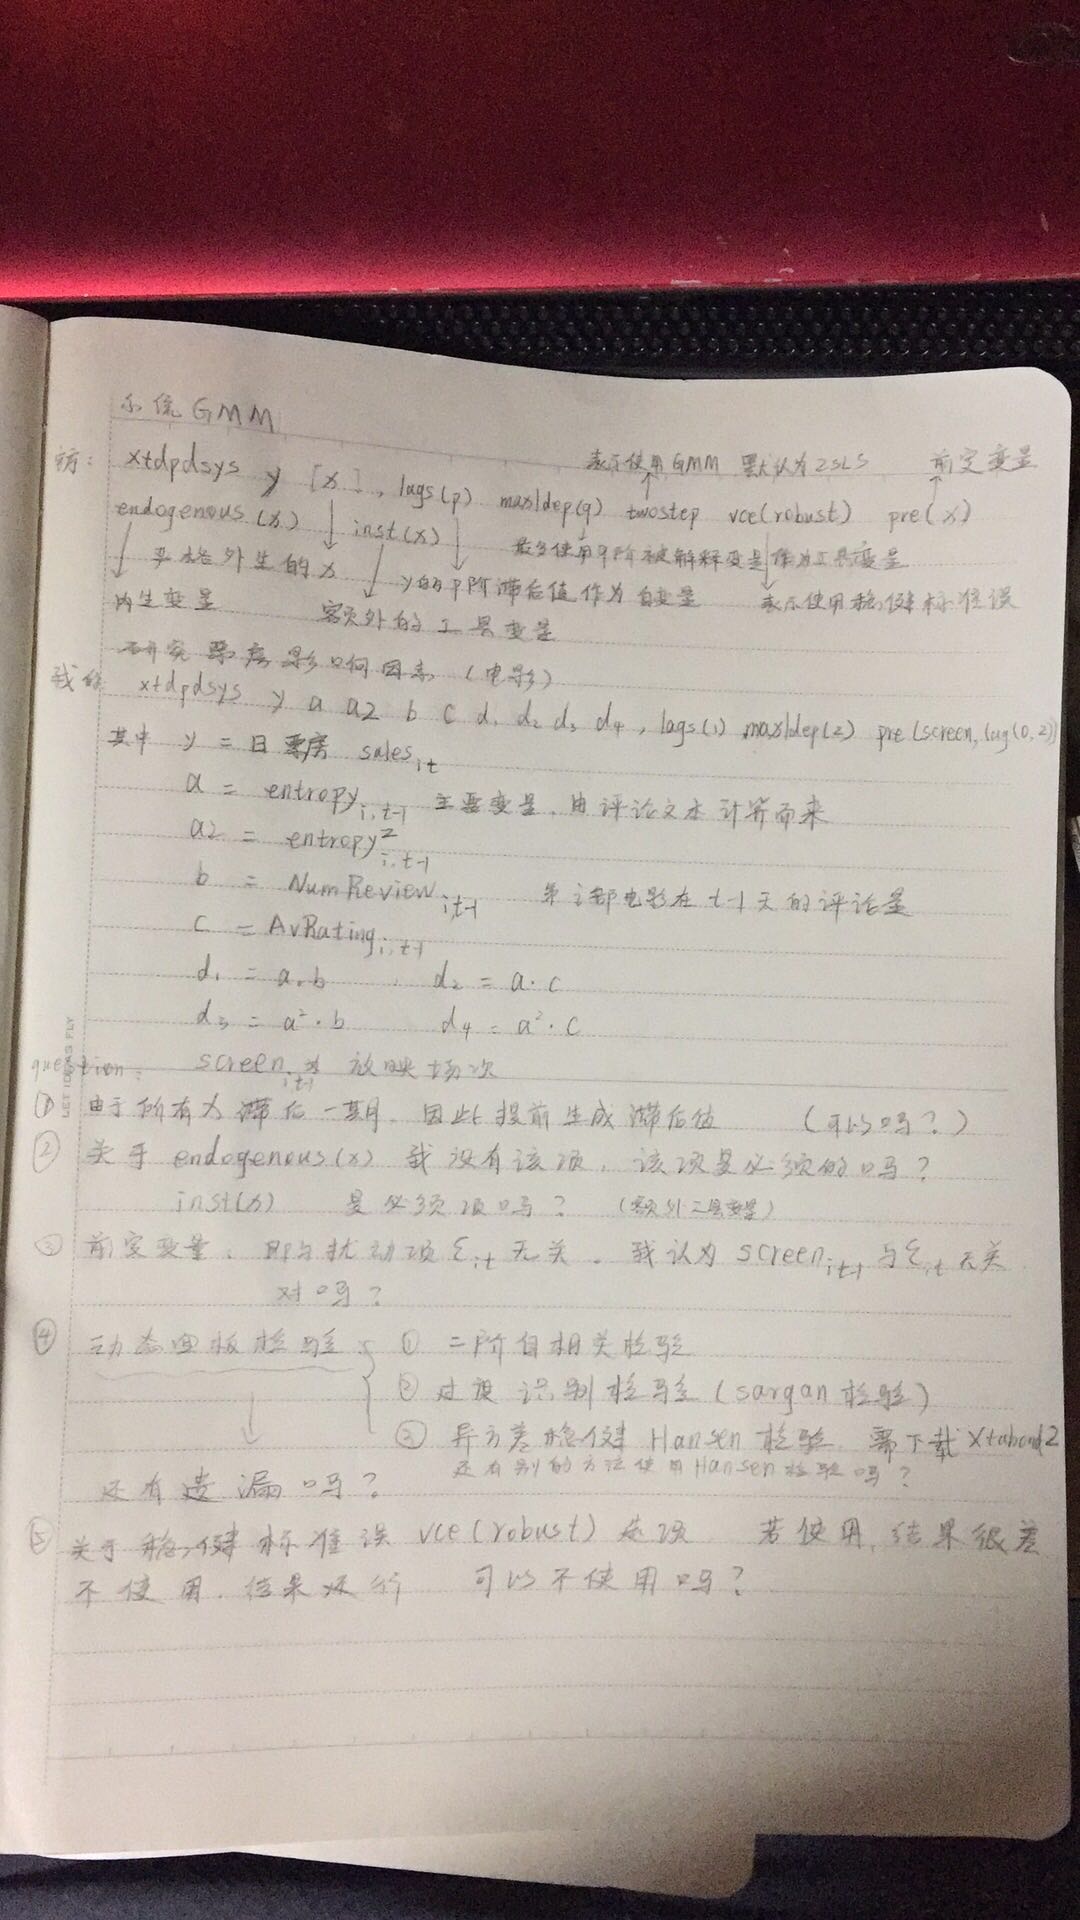 系统GMM
表示使用GMM 默认为2SLS 前定变量
xtdpdsys y [x], lags(p) maxldep(q) twostep vce(robust) pre(x)
endogenous(x) inst(x) 最多使用q阶被解释变量作为工具变量
严格外生的x y的p阶滞后值作为自变量 表示使用稳健标准误
内生变量 额外的工具变量
研究票房影响因素(电影)
xtdpdsys y a a2 b c d1 d2 d3 d4, lags(1) maxldep(2) pre(screen, lag(0,2))
其中 y = 日票房 sales i,t
a = entropy i,t-1 主要变量,由评论文本计算而来
a2 = entropy² i,t-1
b = NumReview i,t-1 第i部电影在t-1天的评论量
c = AvRating i,t-1
d1 = a·b d2 = a·c
d3 = a²·b d4 = a²·c
question: screen i,t-1 为 放映场次
LET IDEAS FLY
① 由于所有为滞后一期,因此提前生成滞后值 (可以吗?)
② 关于 endogenous(x) 我没有该项,该项是必须的吗?
inst(x) 是必须项吗? (额外工具变量)
③ 前定变量,即与扰动项 ε i,t 无关。我认为 screen i,t-1 与 ε i,t 无关
对吗?
④ 动态面板检验 { ① 二阶自相关检验
② 过度识别检验(sargan检验)
③ 异方差稳健 Hansen检验 需下载xtabond2
还有别的方法使用Hansen检验吗?
还有遗漏吗?
⑤ 关于稳健标准误 vce(robust) 选项 若使用,结果很差
不使用,结果还行 可以不使用吗?